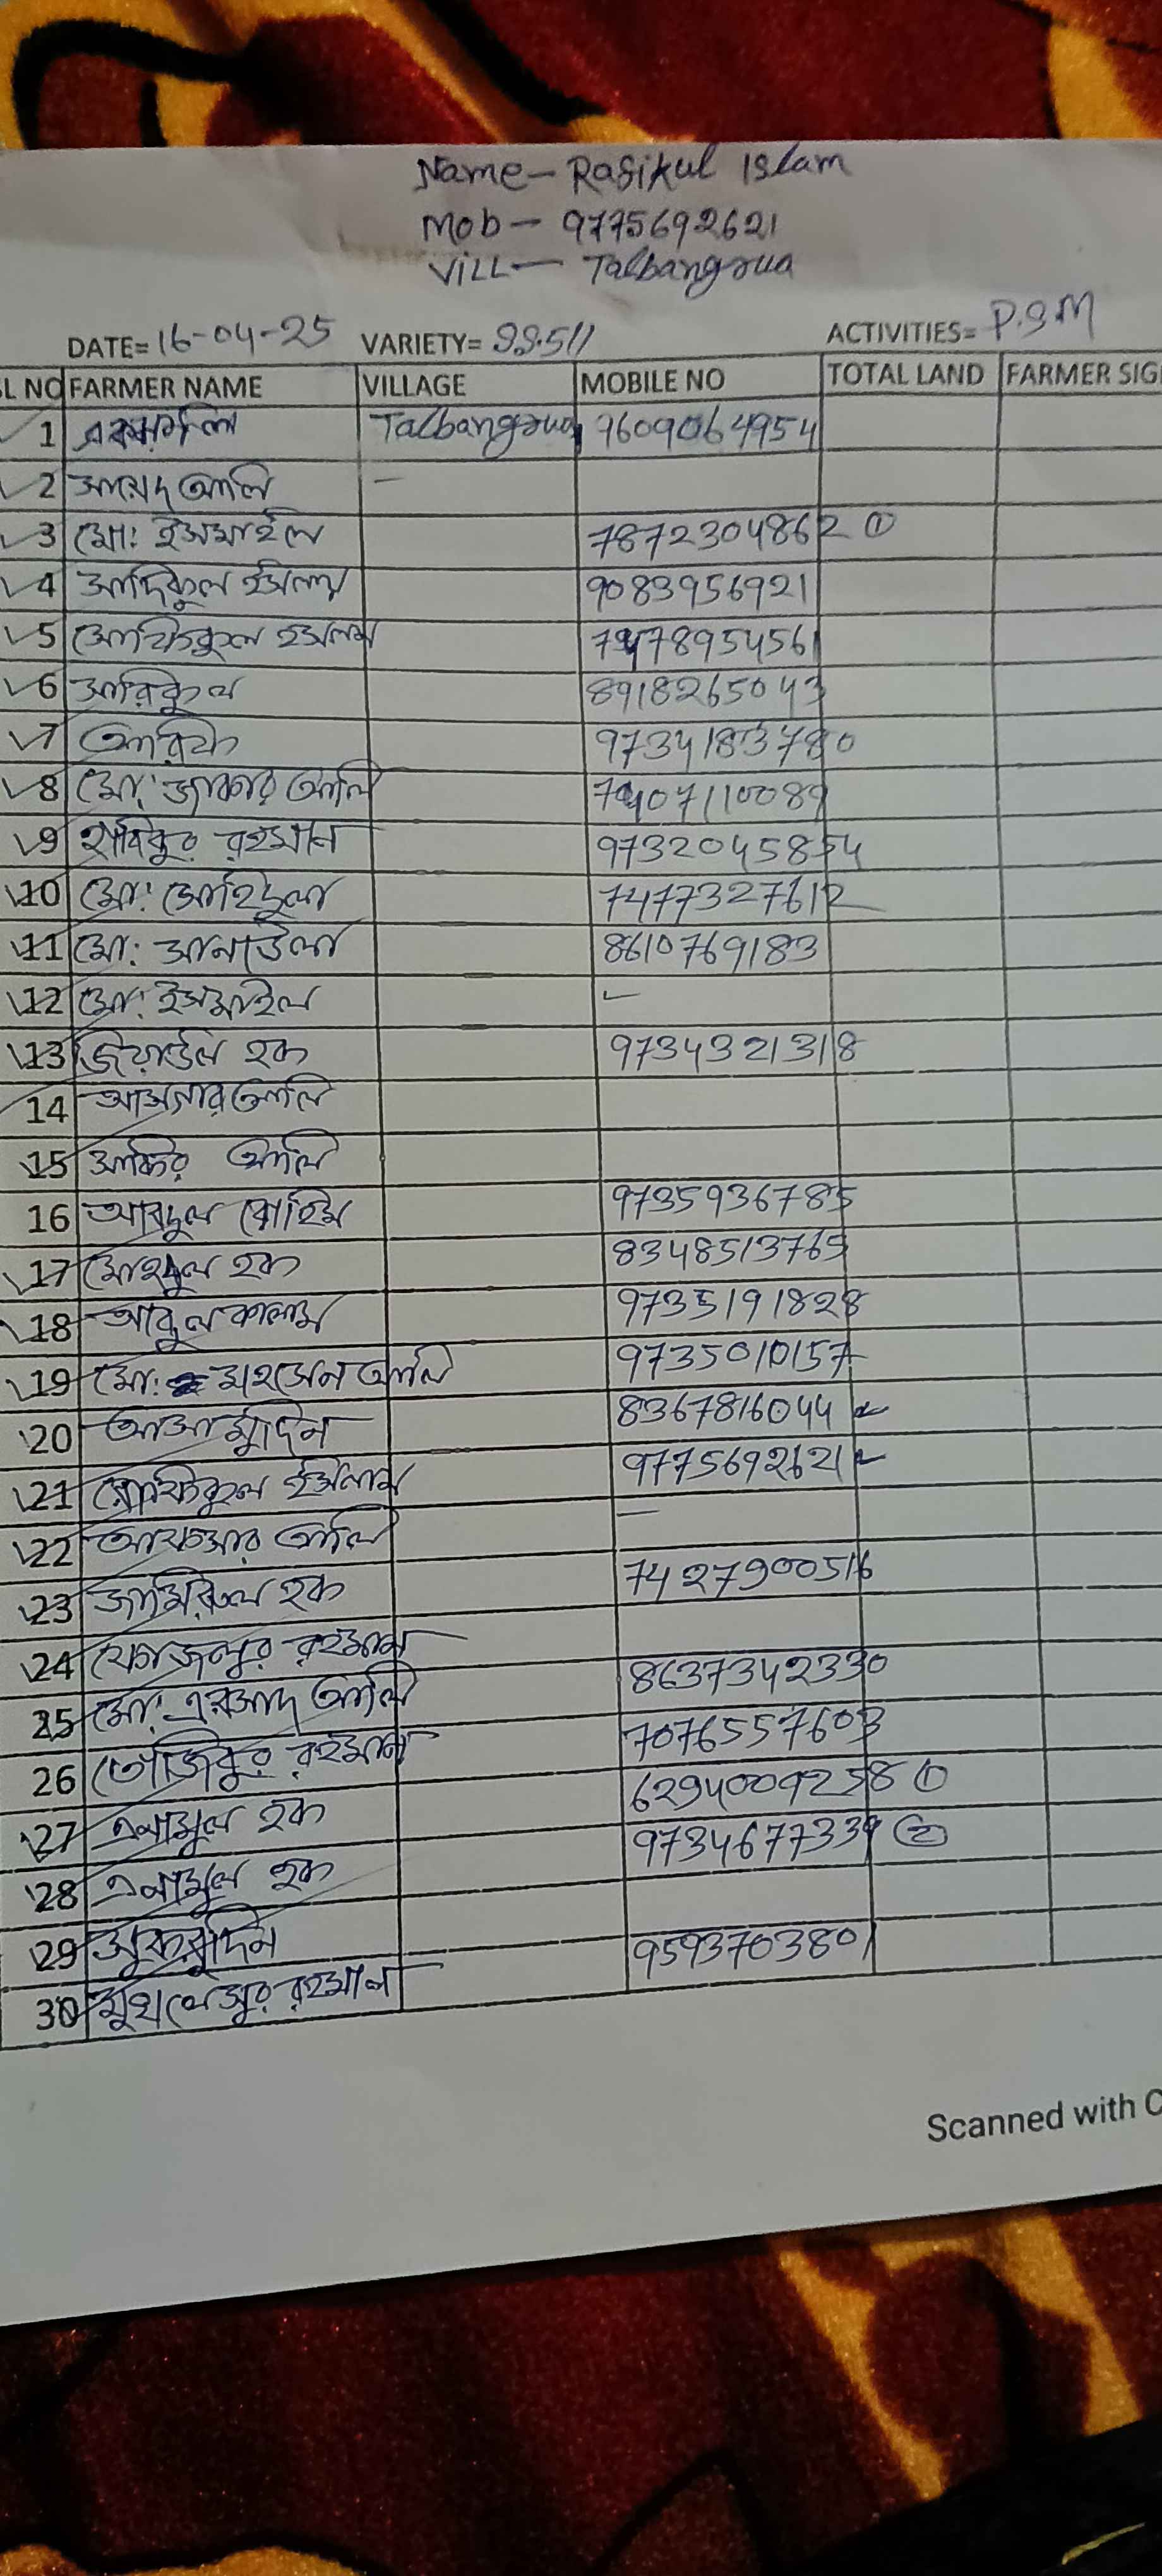 Name- Rafikul Islam
Mob- 9775692621
Vill- Talbangrua
DATE= 16-04-25 VARIETY= SS.511 ACTIVITIES= P.S.M
SL NO FARMER NAME VILLAGE MOBILE NO TOTAL LAND FARMER SIG
1 Talbangrua 9609064954
2 সায়েদ আলি -
3 মো: ইসমাইল 7872304862 ①
4 সাদিকুল ইসলাম 9083956921
5 সোফিকুল ইসলাম 7478954561
6 সারিকুল 8918265043
7 আরিফ 9734183780
8 মো: জাকার আলি 7407110089
9 হাবিবুর রহমান 9732045854
10 মো: সোহিদুল 7477327612
11 মো: সানাউল 8610769183
12 মো: ইসমাইল -
13 জিয়াউল হক 9734321318
14 আসগার আলি
15 সাকির আলি
16 আবদুল রোহিম 9735936785
17 হক 8348513765
18 আবুল কালাম 9735191828
19 মো: মহসেন আলি 9735010157
20 8367816044
21 রোফিকুল ইসলাম 9775692621
22 আফসার আলি -
23 জামিরুল হক 7427900516
24 ফোজলুর রহমান
25 মো: এরসাদ আলি 8637342330
26 তোজিবুর রহমান 7076557603
27 এনামুল হক 6294009258 ①
28 এনামুল হক 9734677339 ②
29
30 মুখলেসুর রহমান 9593703801
Scanned with C